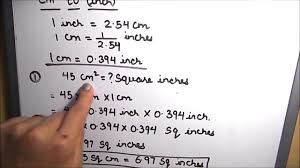 Cm to (inch)
1 inch = 2.54 cm
1 cm = 1/2.54 inch
1 cm = 0.394 inch
① 45 cm² = ? Square inches
= 45 cm × 1 cm
= 45 × 0.394 inch × 0.394 inch
0.394 × 0.394 Sq inches
45 Sq cm = 6.97 Sq inches